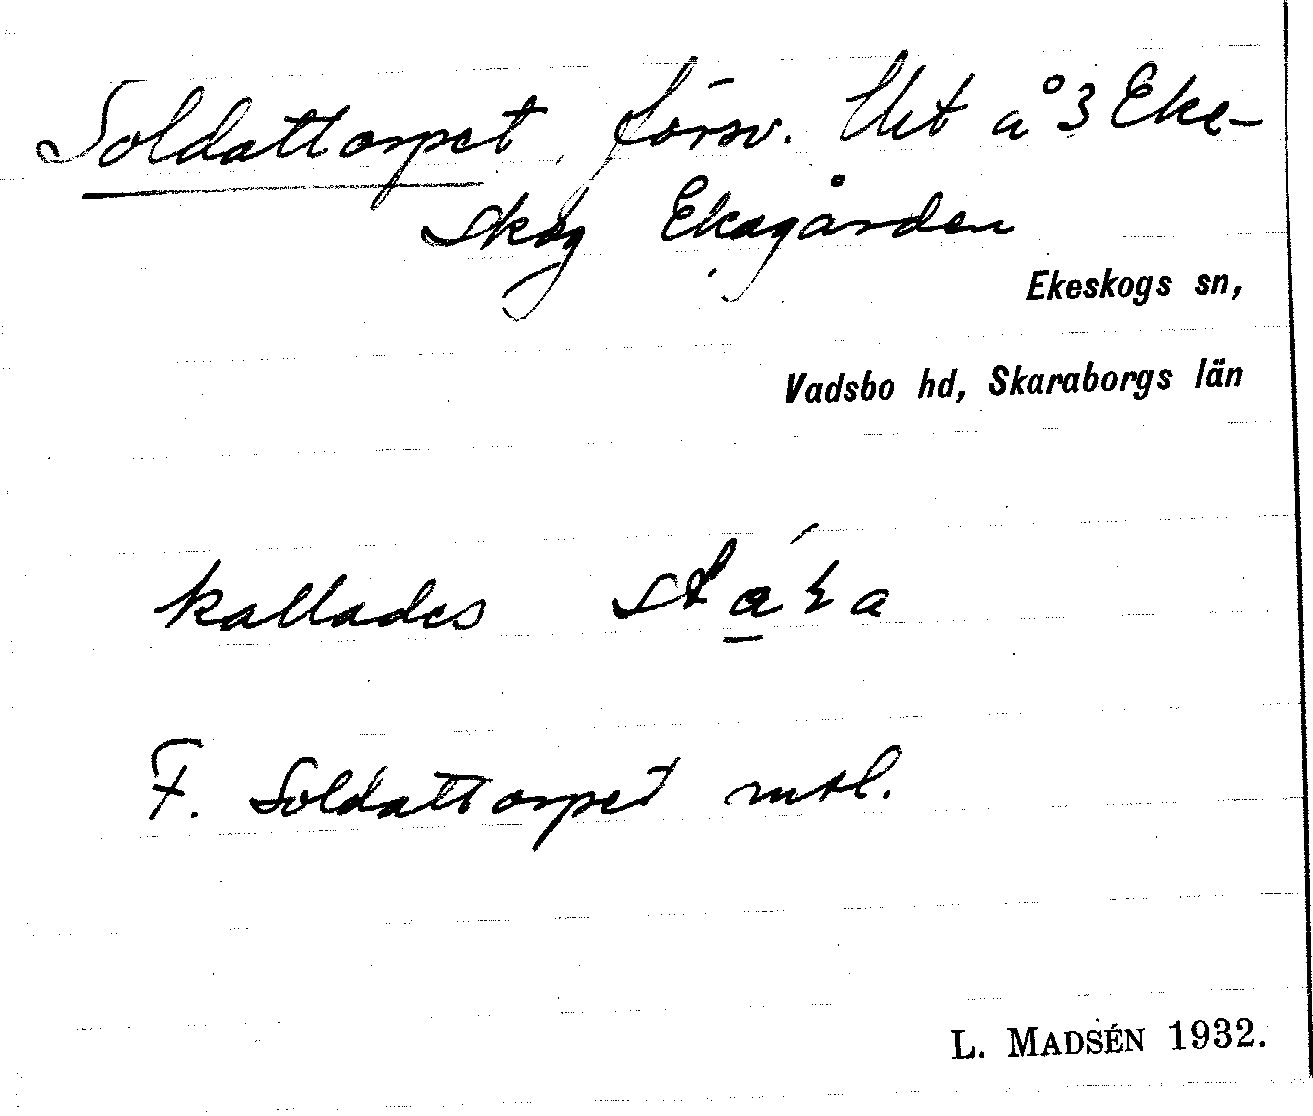 Soldattorpet, försv. Utt å 3 Eke-
skog Ekagården
Ekeskogs sn,
Vadsbo hd, Skaraborgs län
kallades
F. Soldattorpet mtl.
L. MADSÉN 1932.